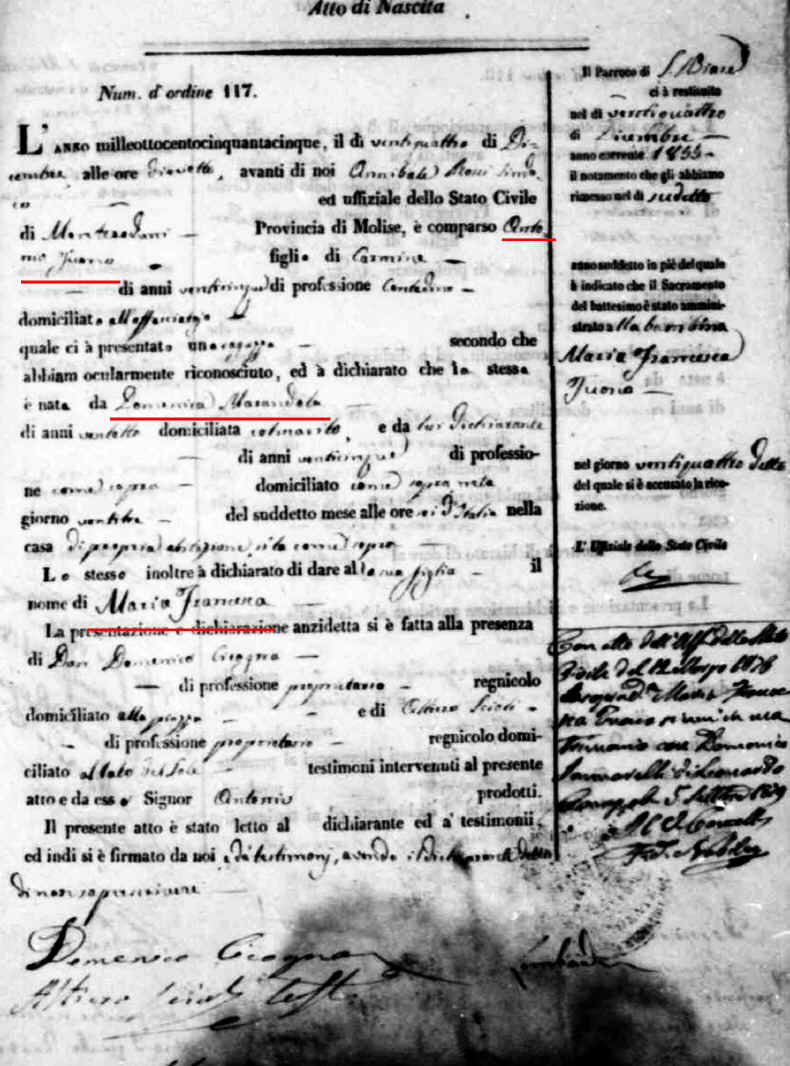 Atto di Nascita
Num. d' ordine 117.
L' ANNO milleottocentocinquantacinque, il dì ventiquattro di Di-
cembre alle ore diecisette, avanti di noi Annibale Rossi Sinda-
co ed uffiziale dello Stato Civile
di Monterodoni Provincia di Molise, è comparso Anto-
nio figlio di Carmine
di anni venticinque di professione Contadino
domiciliato
quale ci à presentato una ragazza secondo che
abbiam ocularmente riconosciuto, ed à dichiarato che la stessa
è nata da Domenica Marandola
di anni ventotto domiciliata col marito, e da lui Dichiarante
di anni venticinque di professio-
ne come sopra domiciliato come sopra nata
giorno ventitre del suddetto mese alle ore sei d'Italia nella
casa di propria abitazione, sita come sopra
Lo stesso inoltre à dichiarato di dare alla sua figlia il
nome di Maria Francesca
La presentazione e dichiarazione anzidetta si è fatta alla presenza
di Don Domenico Cicogna
di professione proprietario regnicolo
domiciliato alla piazza e di
di professione proprietario regnicolo domi-
ciliato testimoni intervenuti al presente
atto e da esso Signor Antonio prodotti.
Il presente atto è stato letto al dichiarante ed a' testimonii,
ed indi si è firmato da noi e da' testimonj, avendo il Dichiarante detto
di non sapere scrivere
Domenico Cicogna
Il Parroco di S. Biase
ci à restituito
nel dì ventiquattro
di Dicembre
anno corrente 1855
il notamento che gli abbiamo
rimesso nel dì suddetto
anno suddetto in piè del quale
è indicato che il Sacramento
del battesimo è stato ammini-
strato alla bambina
Maria Francesca
nel giorno ventiquattro detto
del quale si è accusata la rice-
zione.
L' Uffiziale dello Stato Civile
Con atto dell'Uff. dello Stato
Civile del 12 1876
Maria France
sca si unì in ma
trimonio con Domenico
di Leonardo